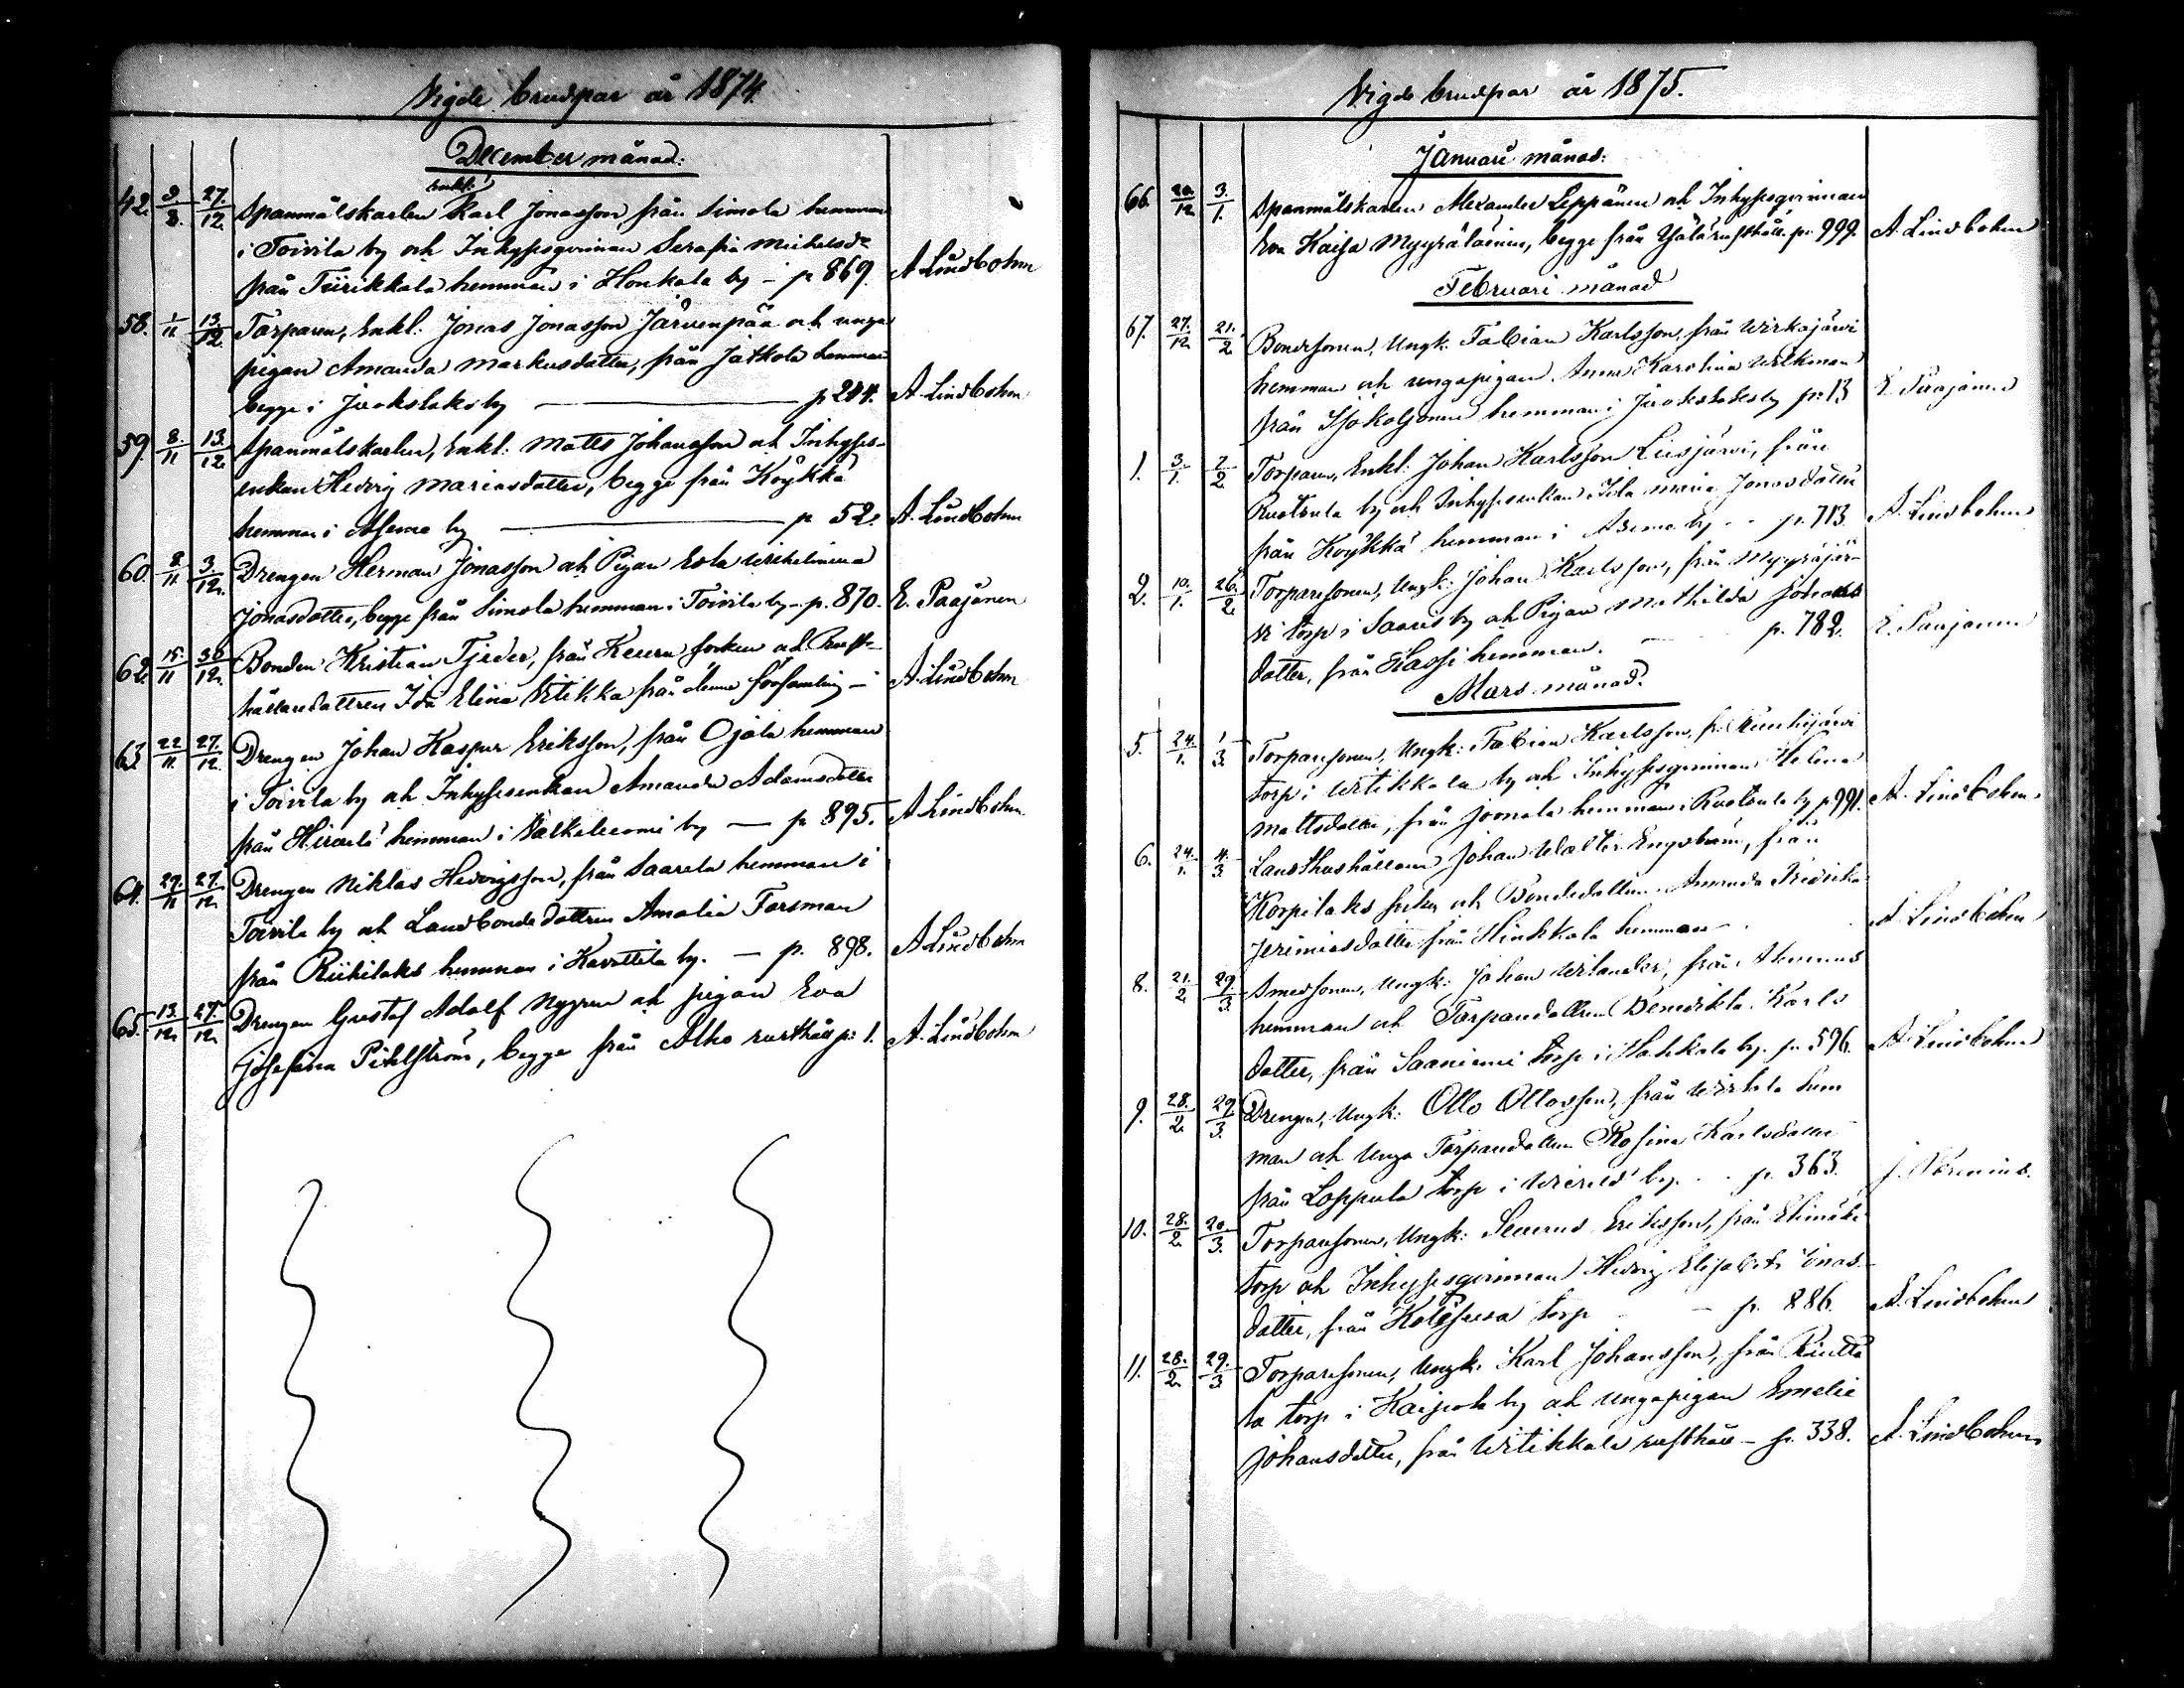 Vigde brudpar år 1874.
December månad:
enkl:
42. 9/8. 27./12. Spanmålskarlen Karl Jonasson från Simola hemman
i Toivila by och Inhysesqvinnan Serafia Michelsdr
från Tiirikkala hemman i Honkala by – p 869. A Lindbohm
58. 1/11 13./12. Torparen, Enkl: Jonas Jonasson Järvenpää och unga
pigan Amanda Markusdotter, från Jatkola hemman
begge i Juokslaks by — p 244. A. Lindbohm
59. 8./11 13./12 Spanmålskarlen, Enkl: Matts Johansson och Inhyses-
enkan Hedvig Mariasdotter, begge från Köykkä
hemman i Asema by — p 52. A. Lindbohm
60. 8./11. 3/12. Drengen Herman Jonasson och Pigan Eva Wilhelmina
Jonasdotter, begge från Simola hemman i Toivila by – p. 870. E. Paajanen
62. 15./11 30/12. Bonden Kristian Tjeder, från Keuru socken och Rust-
hållaredottren Ida Elina Utikka från denna församling – A. Lindbohm
63. 22/11. 27./12. Drengen Johan Kasper Eriksson, från Ojala hemman
i Toivila by och Inhysesenkan Amanda Adamsdotter
från Hirvelä hemman i Valkeluomi by — p 895. A Lindbohm
64. 29./11 27./12. Drengen Niklas Hedvigsson, från Saarela hemman i
Toivila by och Landbondedottren Amalia Forsman
från Riihilaks hemman i Kavettila by. — p. 898. A Lindbohm
65. 13./12. 27./12. Drengen Gustaf Adolf Nygren och pigan Eva
Josefina Pihlström, begge från Alho rusthåll p: 1. A. Lindbohm
Vigde brudpar år 1875.
Januari månad:
66. 20./12. 3./1. Spanmålskarlen Alexander Leppänen och Inhysesqvinnan
Eva Kaisa Myyräläinen, begge från Yjälä rusthåll. p. 999. A. Lindbohm
Februari månad
67. 27./12. 21./2. Bondesonen, Ungk: Fabian Karlsson, från Wirkajärvi
hemman och ungapigan Anna Karolina Wilkman
från hemman i Juokslaks by p: 13 E. Paajanen
1. 3./1. 2/2. Torparen, Enkl: Johan Karlsson Liesjärvi, från
Ruotsula by och Inhysesenkan Ida Maria Jonasdotter
från Köykkä hemman i Asema by – p. 713. A. Lindbohm
2. 10./1. 26./2. Torparesonen, Ungk: Johan Karlsson, från Myyräjär-
vi torp i Saaris by och Pigan Mathilda Johans
dotter, från Hassi hemman. – p. 782. E. Paajanen
Mars månad.
5. 24./1. 1/3. Torparesonen, Ungk: Fabian Karlsson, fr. Ruuhijärvi
torp i Utikkala by och Inhysesqvinnan Helena
Mattsdotter, från Joonela hemman i Ruotsula by p. 991. A. Lindbohm
6. 24./1. 4./3. Landthushållaren Johan Walter Engström, från
Korpilaks socken och Bondedottren Amanda Fredrika
Jeremiasdotter från Hinkkala hemman – A. Lindbohm
8. 21./2. 29./3. Smedsonen, Ungk: Johan Wilander, från
hemman och Torparedottren Benedikta Karls
dotter, från Saariniemi torp i Hahkala by. p. 596. A. Lindbohm
9. 28./2. 29./3. Drengen, Ungk: Otto Ottosson, från Wirkila hem
man och Unga Torparedottren Rosina Karlsdotter
från Loppula torp i by. – p. 363. J.
10. 28./2. 20./3. Torparesonen, Ungk: Severus Eriksson, från Elimäki
torp och Inhysesqvinnan Hedvig Elisabeth Jonas-
dotter, från torp – p. 886. A. Lindbohm
11. 28./2. 29./3 Torparesonen, Ungk: Karl Johansson, från Riutta
la torp i Kaipola by och Ungapigan Emelie
Johansdotter, från Utikkala rusthåll – p. 338. A. Lindbohm